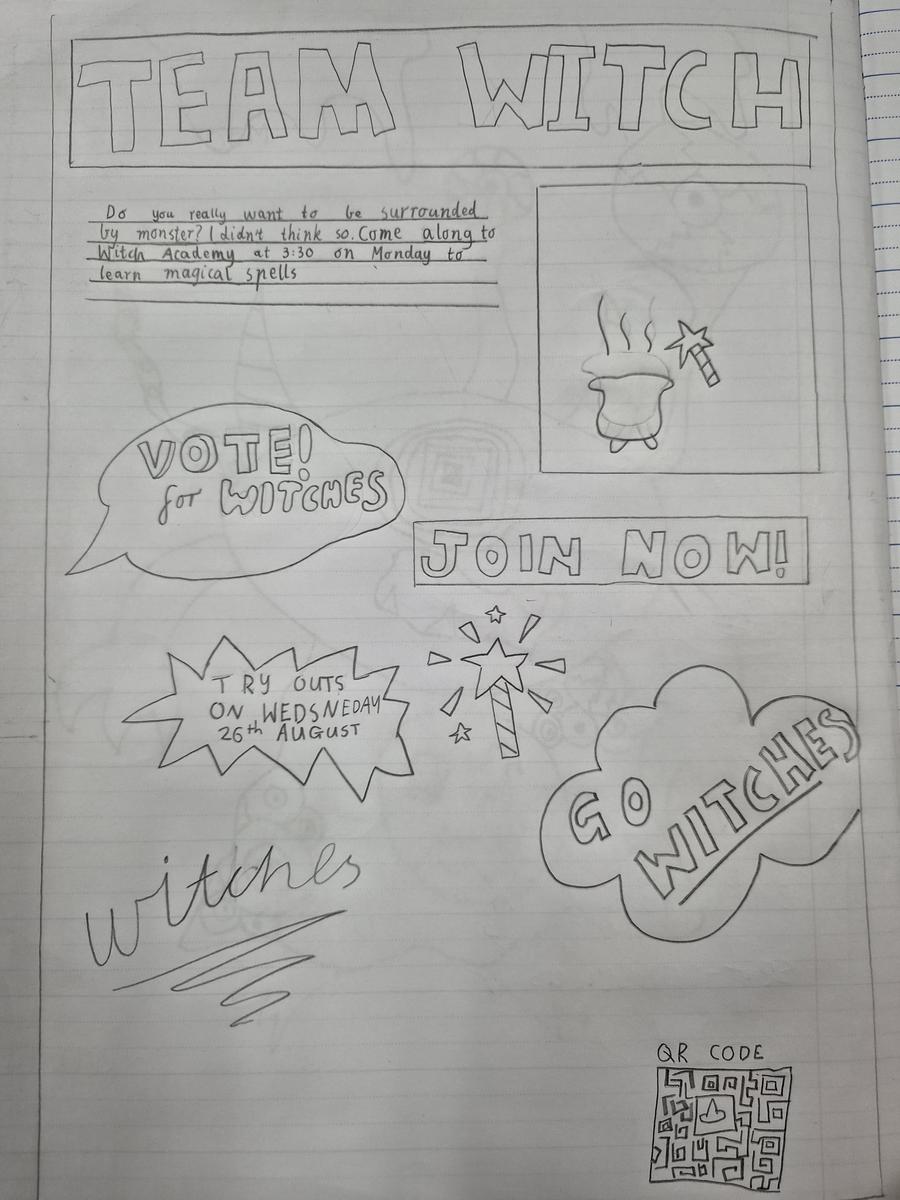 TEAM WITCH
Do you really want to be surrounded
by monster? I didn't think so. Come along to
Witch Academy at 3:30 on Monday to
learn magical spells
VOTE!
for WITCHES
JOIN NOW!
TRY OUTS
ON WEDSNEDAY
26th AUGUST
GO
WITCHES
witches
QR CODE